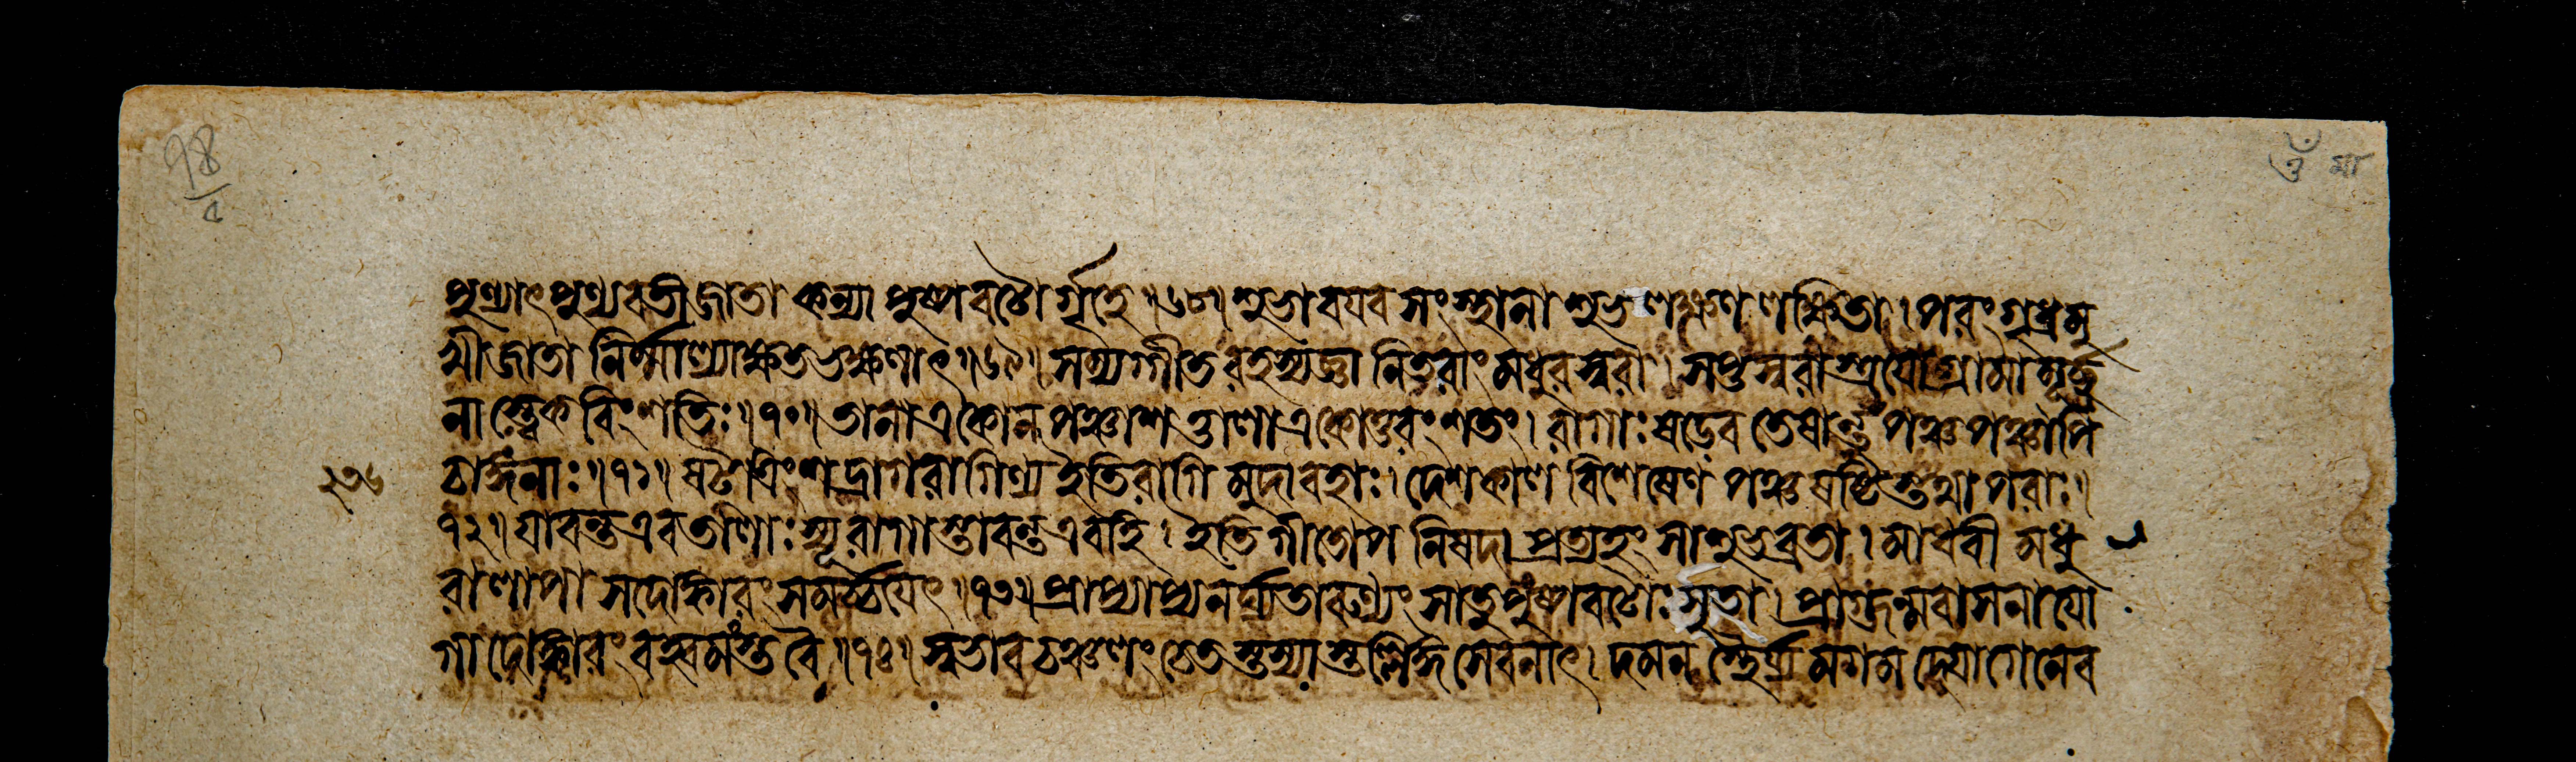 ৭৪
৫
ওঁ মা
পুণ্যাৎ পুণ্যবতী জাতা কন্যা পুষ্পবটোর্গৃহে ॥৬৮॥ শুভাবযবসংস্থানা শুভলক্ষণলক্ষিতা। পরং গৃধ্রমু
খী জাতা নির্মাল্যাক্ষতভক্ষণাৎ ॥৬৯॥ সম্যগ্গীতরহস্যজ্ঞা নিতরাং মধুরস্বরা। সপ্তস্বরাস্ত্রযো গ্রামা মূর্চ্ছ
নাস্ত্বেকবিংশতিঃ ॥৭০॥ তানা একোনপঞ্চাশত্তালা একোত্তরং শতং। রাগাঃ ষডেব তেষান্তু পঞ্চ পঞ্চাপি
চাঙ্গনাঃ ॥৭১॥ ষট্ত্রিংশদ্রাগরাগিণ্য ইতি রাগিমুদাবহাঃ। দেশকালবিশেষেণ পঞ্চষষ্টিস্তথাপরাঃ॥
২৩৬
৭২॥ যাবন্ত এব তালাঃ স্যূ রাগাস্তাবন্ত এব হি। ইতি গীতোপনিষদা প্রত্যহং সা শুভব্রতা। মাধবী মধু
রালাপা সদোঙ্কারং সমর্চ্চযেৎ ॥৭৩॥ প্রাপ্যাপ্যনর্ঘ্যতারুণ্যং সা তু পুষ্পবটোঃ সুতা। প্রাগ্জন্মবাসনাযো
গাদোঙ্কারং বহ্বমংস্ত বৈ ॥৭৪॥ স্বভাবচঞ্চলং চেতস্তস্যাস্তল্লিঙ্গসেবনাৎ। দমনস্থৈর্য্যমগমদ্যোগেনেব